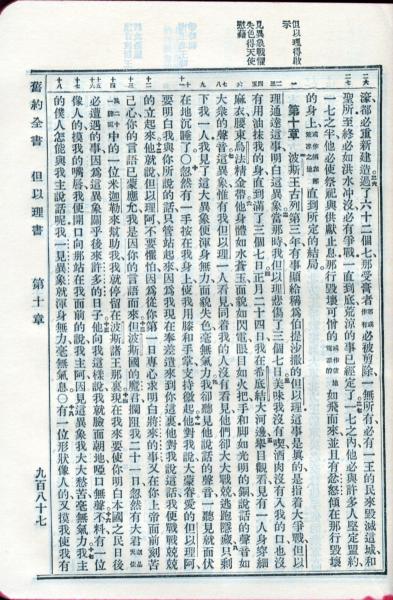 但以理得啟示
見異象戰懼失色得天使慰藉
濠都必重新建造過了六十二個七那受膏者必被剪除一無所有必有一王的民來毀滅這城和
聖所至終必如洪水冲沒必有爭戰一直到底荒涼的事已經定了一七之內他必與許多人堅定盟約
一七之半他必使祭祀與供獻止息那行毀壞可憎的如飛而來並且有忿怒傾在那行毀壞
的身上直到所定的結局
第十章 波斯王古列第三年有事顯給稱為伯提沙撒的但以理這事是眞的是指着大爭戰但以
理通達這事明白這異象當那時我但以理悲傷了三個七日美味我沒有喫酒肉沒有入我的口也沒
有用油抹我的身直到滿了三個七日正月二十四日我在希底結大河邊舉目觀看見有一人身穿細
麻衣腰束烏法精金帶他身體如水蒼玉面貌如閃電眼目如火把手和脚如光明的銅說話的聲音如
大衆的聲音這異象惟有我但以理一人看見同着我的人沒有看見他們却大大戰兢逃跑隱藏只剩
下我一人我見了這大異象便渾身無力面貌失色毫無氣力我卻聽見他說話的聲音一聽見就面伏
在地沉睡了○忽然有一手按在我身上使我用膝和手掌支持微起他對我說大蒙眷愛的但以理阿
要明白我與你所說的話只管站起來因為我現在奉差遣來到你這裏他對我說這話我便戰戰兢兢
的立起來他就說但以理阿不要懼怕因為從你第一日專心求明白將來的事又在你上帝面前刻苦
己心你的言語已蒙應允我是因你的言語而來但波斯國的魔君攔阻我二十一日忽然有大君
中的一位米迦勒來幫助我我就停留在波斯諸王那裏現在我來要使你明白本國之民日後
必遭遇的事因為這異象關乎後來許多的日子他向我這樣說我就臉面朝地啞口無聲不料有一位
像人的摸我的嘴唇我便開口向那站在我面前的說我主阿因見這異象我大大愁苦毫無氣力我主
的僕人怎能與我主說話呢我一見異象就渾身無力毫無氣息○有一位形狀像人的又摸我使我有
舊約全書 但以理書 第十章 九百八十七